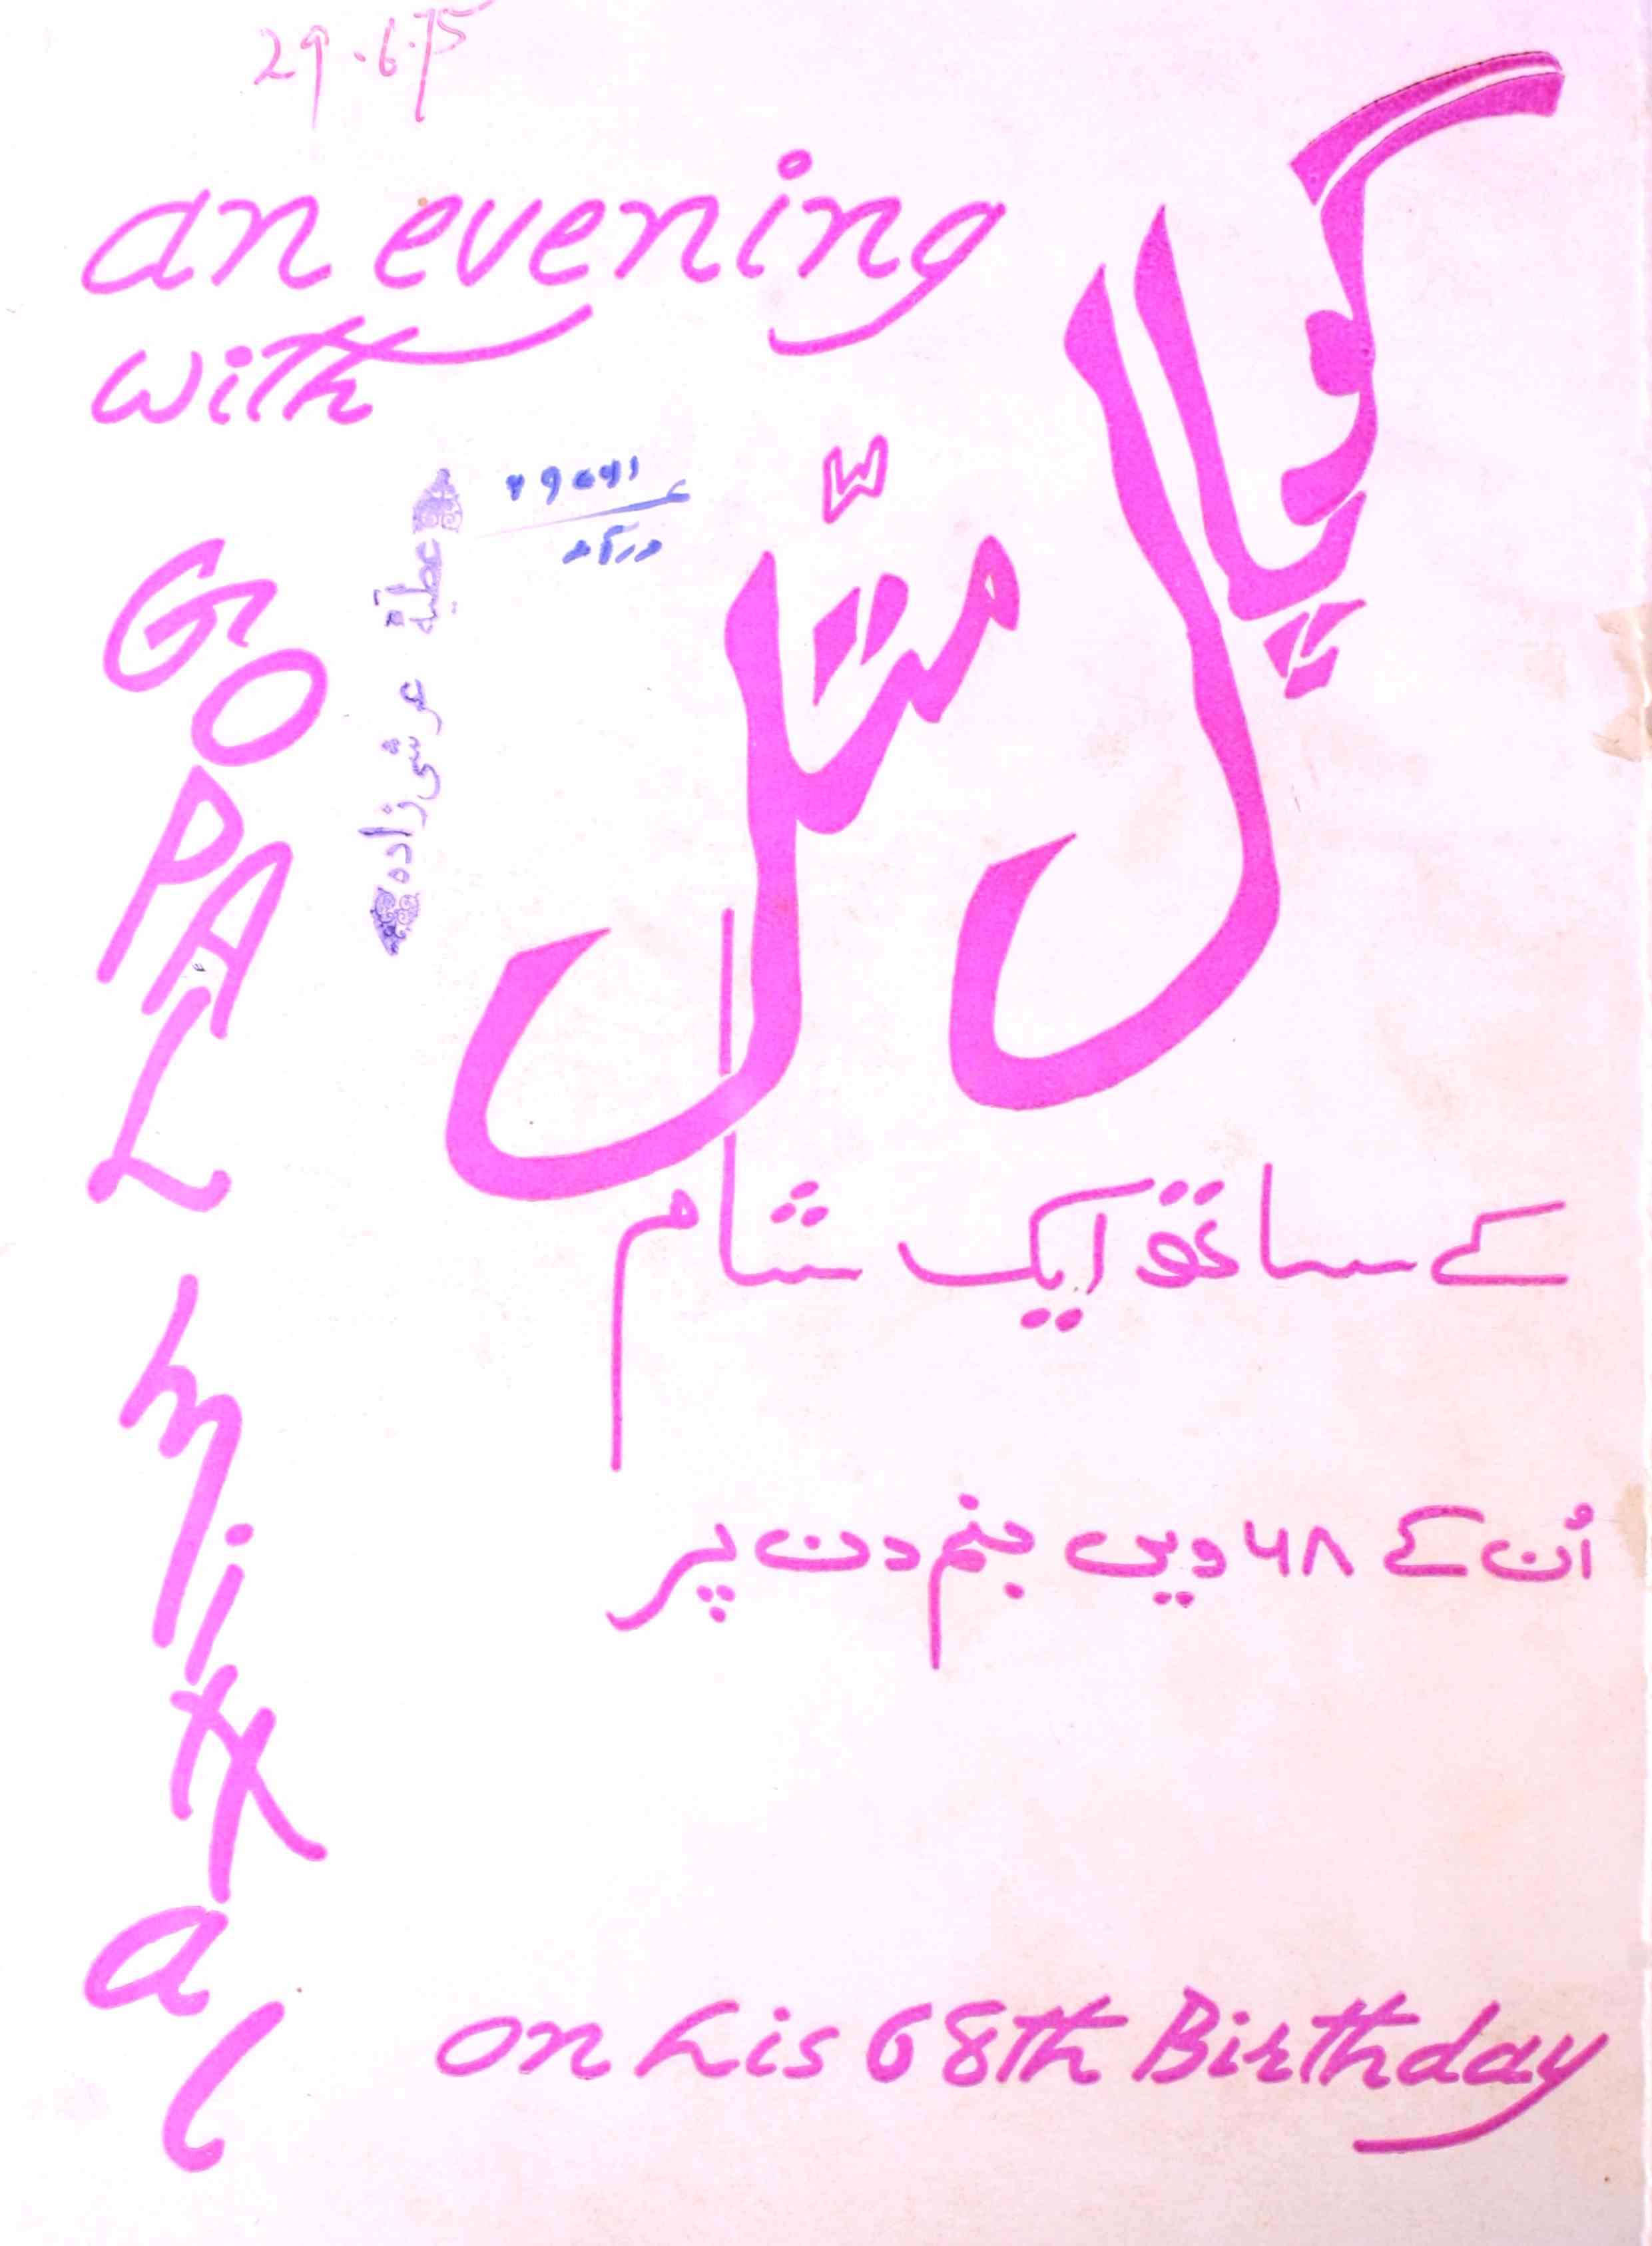 29.6.75
an evening
with
GOPAL mittal
گوپال
متّل
عطیۂ عرشی زادہ
کے ساتھ ایک شام
اُن کے ۶۸ ویں جنم دن پر
on his 68th Birthday